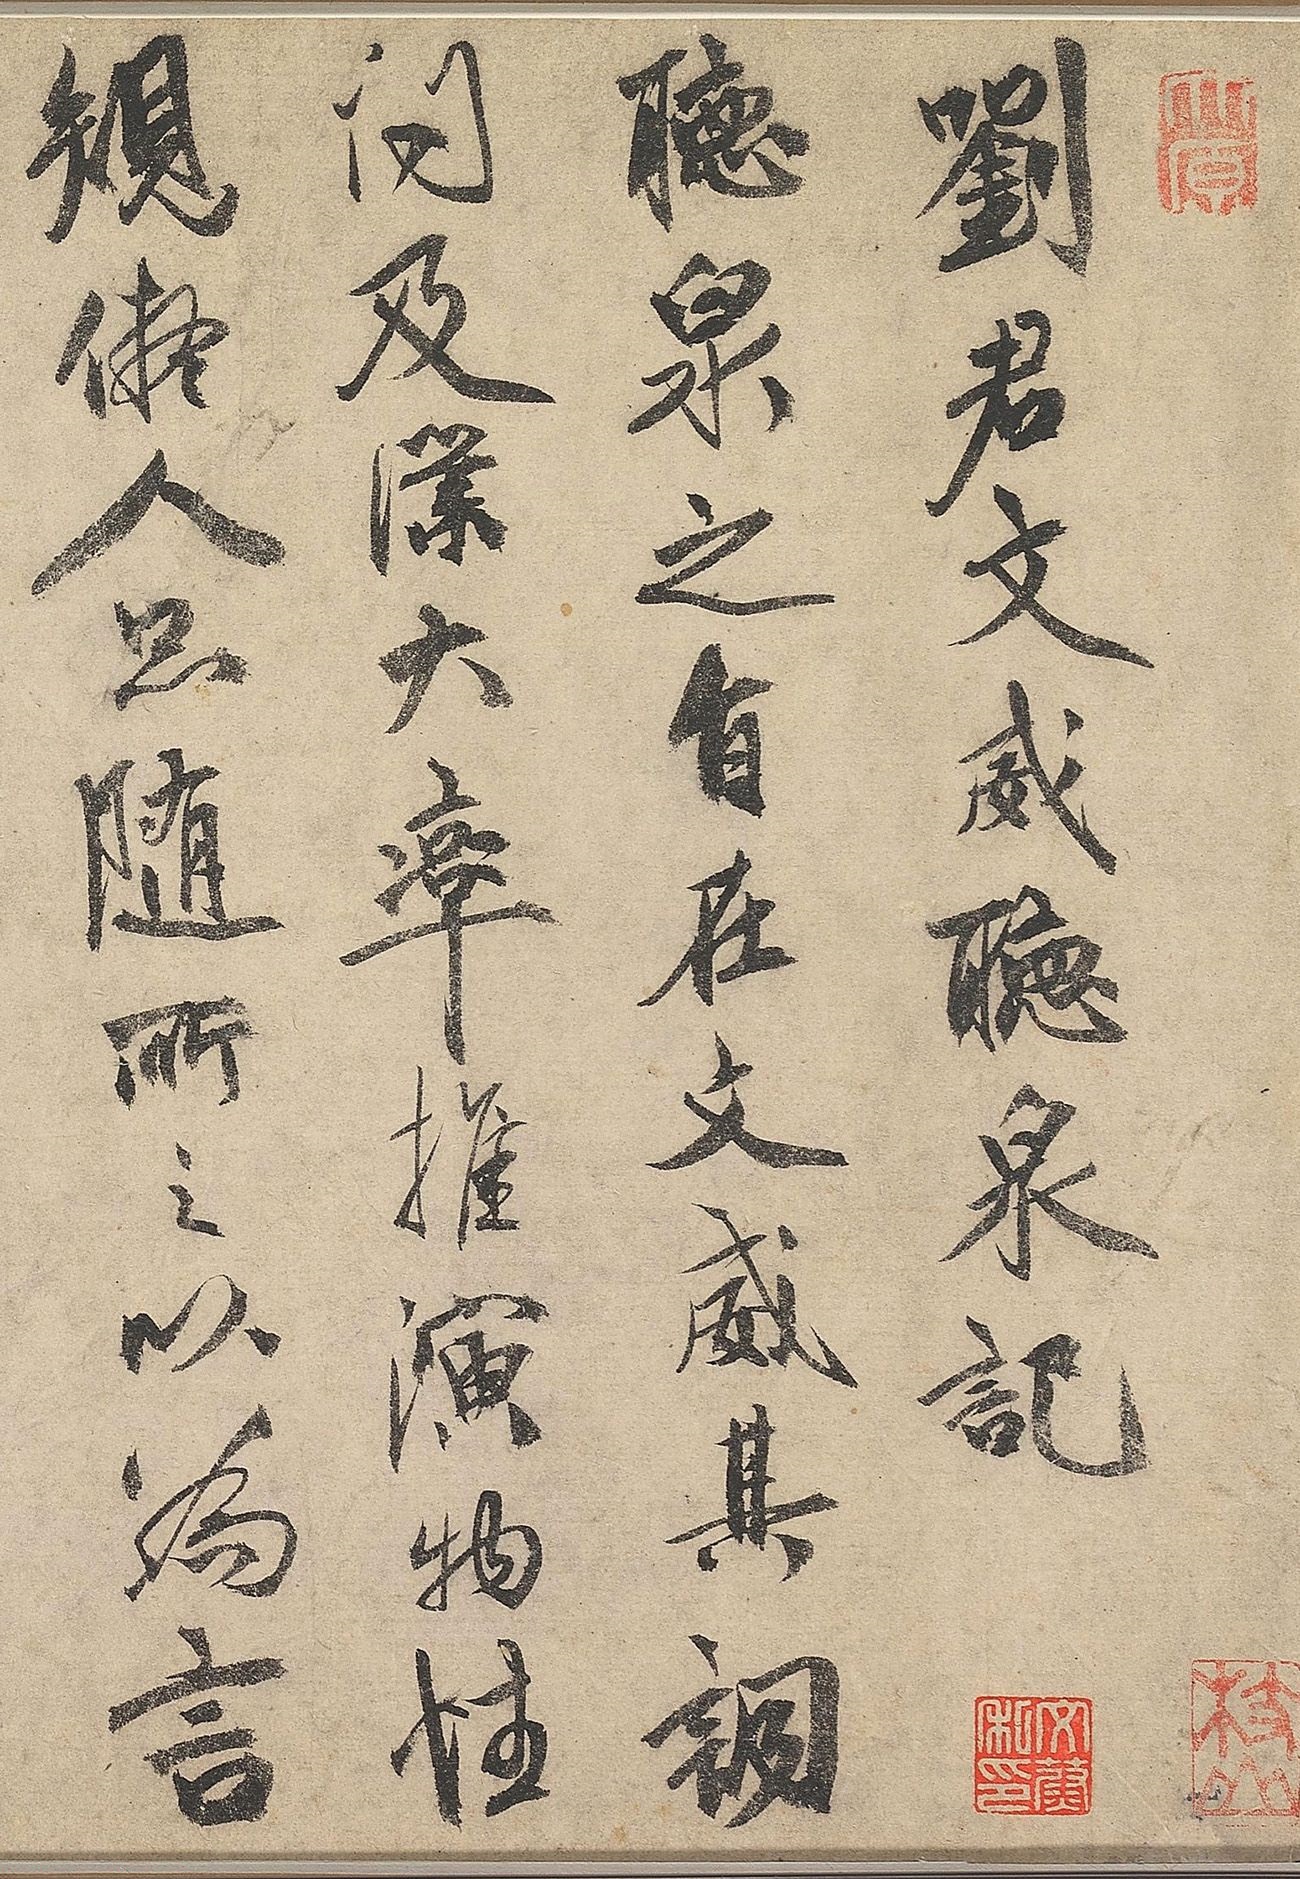 劉君文威聽泉記
聽泉之旨在文威其調
及大率推演物性
規儗人品隨所之以為言
枝山